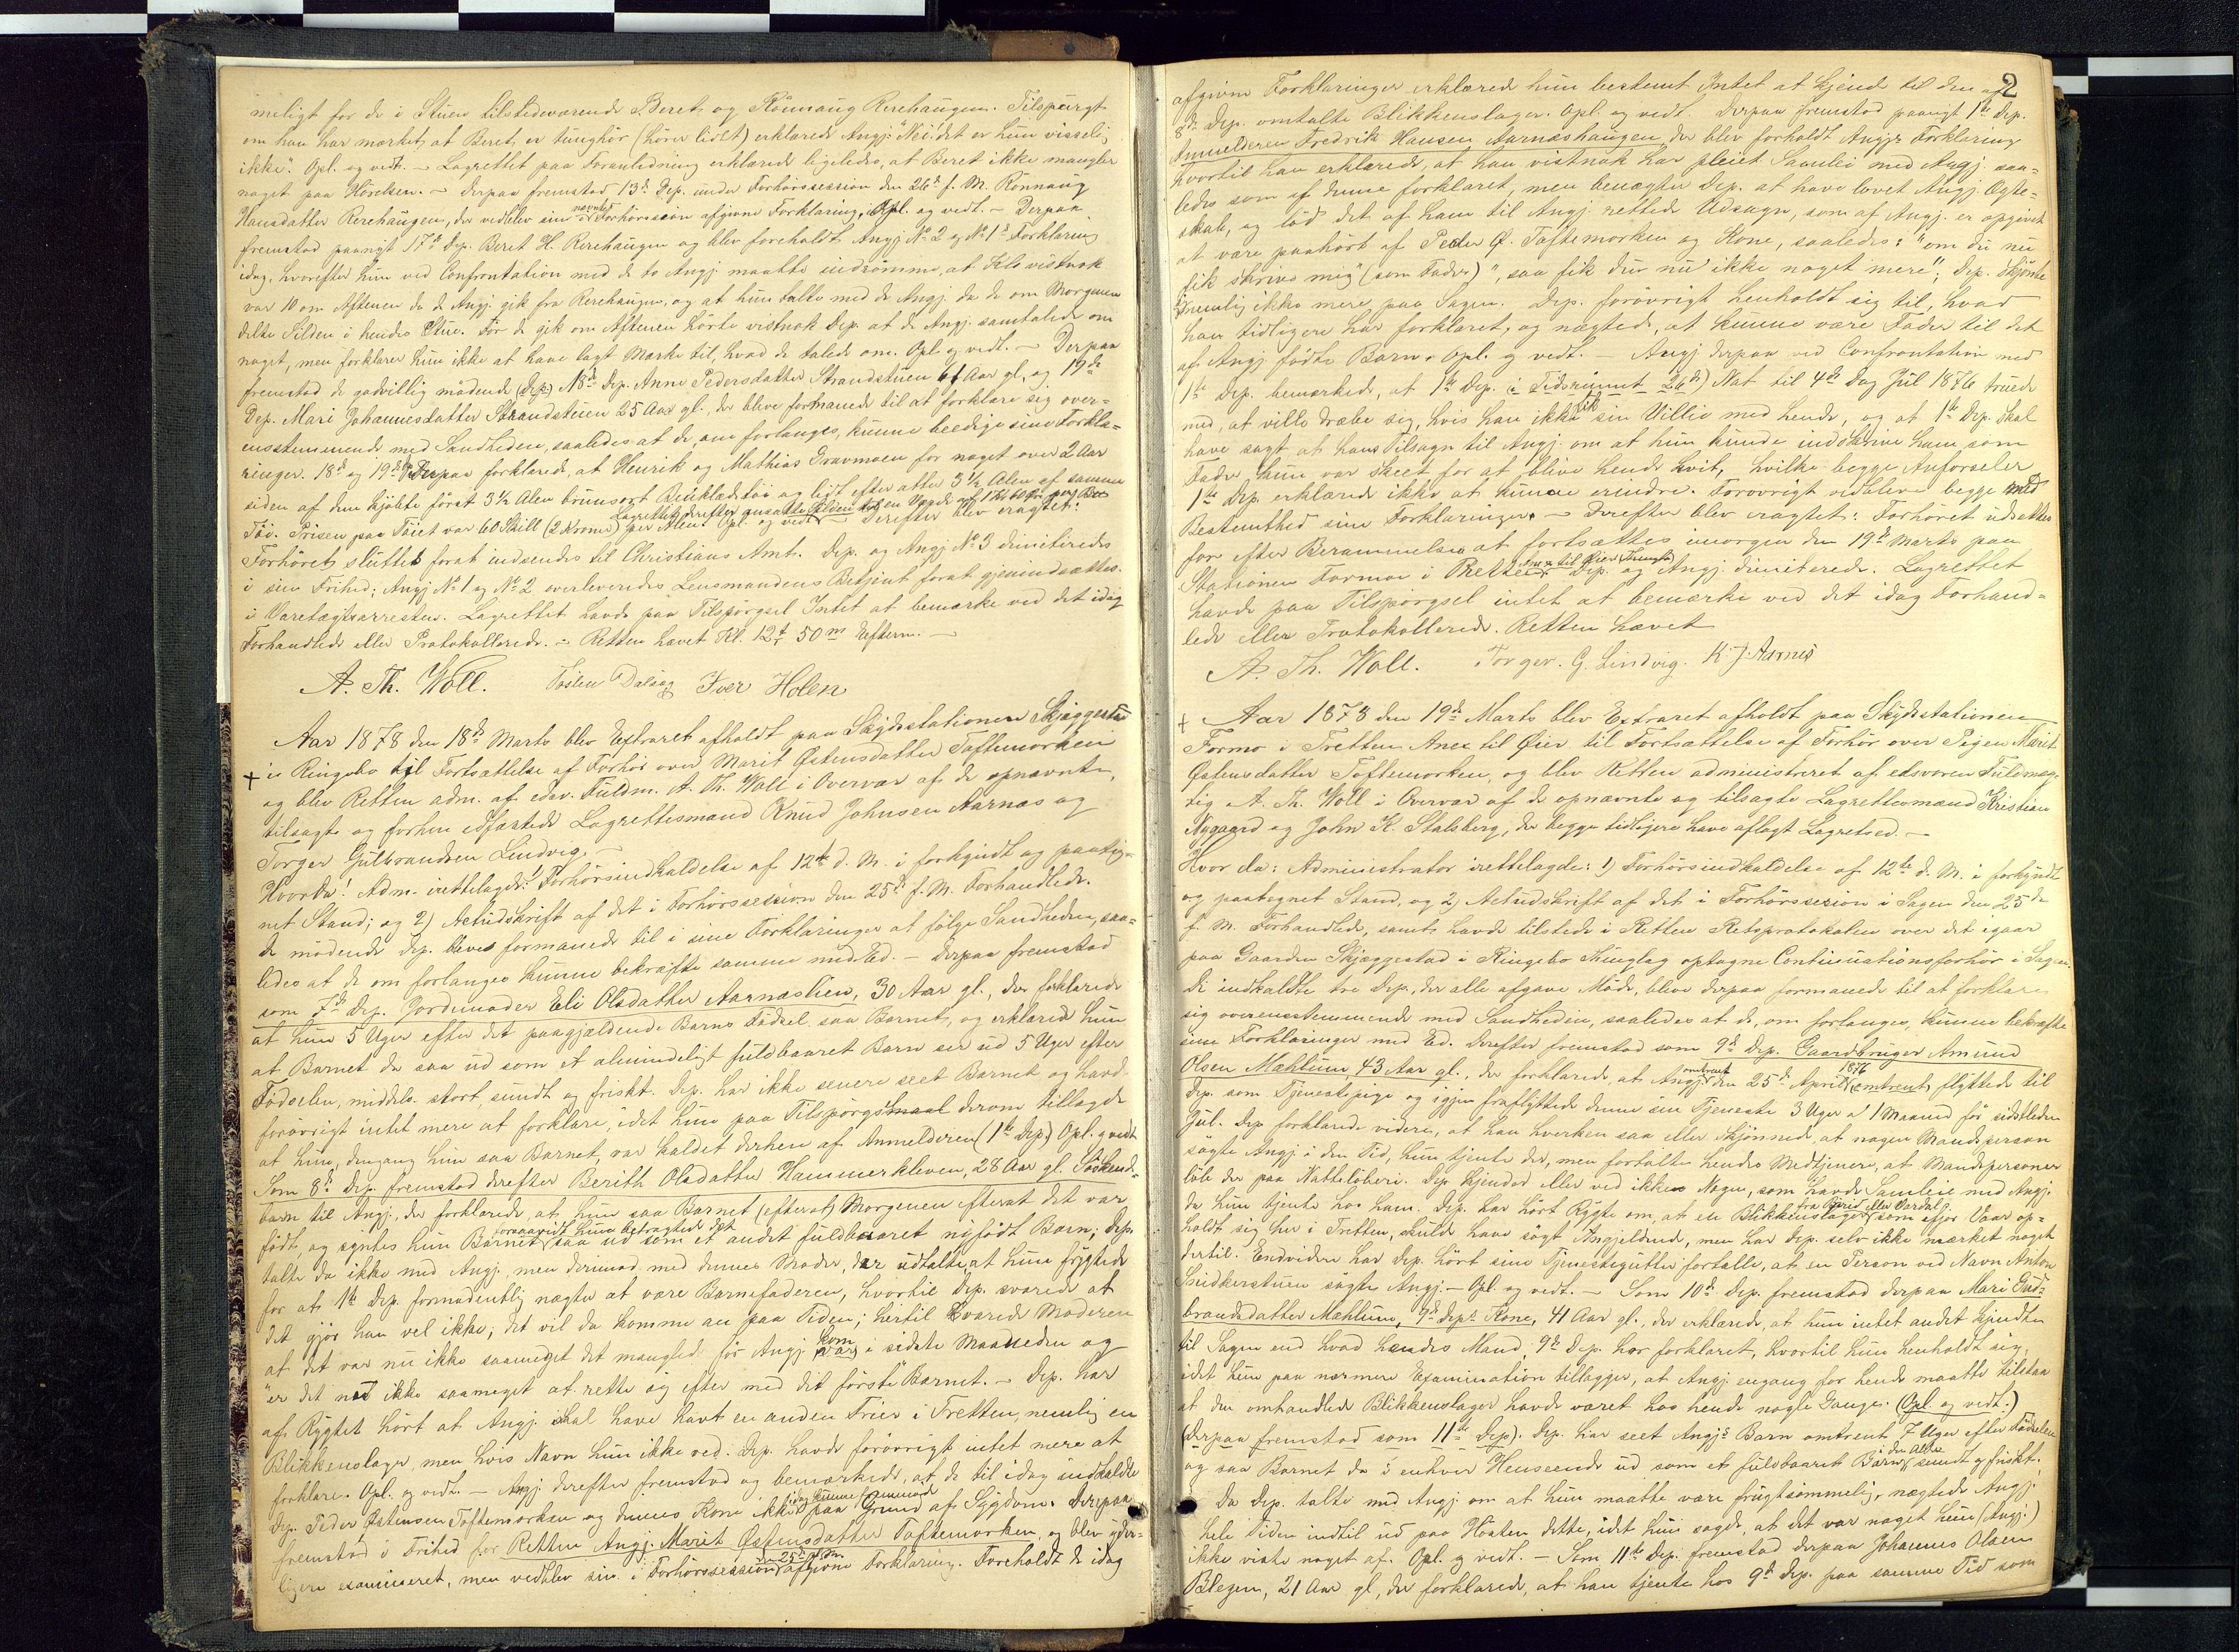 meligt for de i Stuen tilstedeværende Beret og Rönnaug Rerehaugen. Tilspurgt
om han har mærket at Beret er tunghör (hörer lidet) erklærede Angj: "Nei det er hun visselig
ikke". Opl. og vedt. - Lagrettet paa Foranledning erklærede ligeledes, at Beret ikke mangler
noget paa Hörelsen. - Derpaa fremstod 13de Dep. under Forhörssession den 26de f. M. Rönnaug
Hansdatter Rerehaugen, der vedblev sin i nævnte Forhörssession afgivne Forklaring. Opl. og vedt. - Derpaa
fremstod paanyt 17de Dep. Beret H. Rerehaugen og blev foreholdt Angj No 2 og No 1s Forklaring
idag, hvorefter hun ved Confrontation med de to Angj. maatte indrömme, at Kl. vistnok
var 10 om Aftenen da de Angj. gik fra Rerehaugen, og at hun talte med de Angj. da de om Morgenen
delte Silden i hendes Stue. För de gik om Aftenen hörte vistnok Dep. at de Angj. samtalede om
noget, men forklarer hun ikke at have lagt Mærke til, hvad de talede om. Opl. og vedt. - Derpaa
fremstod de godvillig mödende (Dep.) 18de Dep. Anne Pedersdatter Strandstuen 61 Aar gl. og 19de
Dep. Mari Johannesdatter Strandstuen 25 Aar gl., der bleve formanede til at forklare sig over-
ensstemmende med Sandheden, saaledes at de, om forlanges, kunne beedige sine Forkla-
ringer. 18de og 19de Dep. Derpaa forklarede, at Henrik og Mathias Gravmoen for noget over 2 Aar
siden af dem kjöbte först 3½ Alen brunsort Benklædetöi og lidt efter atter 3½ Alen af samme
Töi. Prisen paa Töiet var 60 Skill (2 Kroner) per Alen. Opl. og vedt. Lagrettet derefter ansatte Silden til en Værdi af Derefter blev eragtet:
Forhöret sluttet forat indsendes til Christians Amt. Dep. og Angj No 3 dimitteredes
i sin Frihed; Angj No 1 og No 2 overleveredes Lensmandens Betjent forat gjenindsættes
i Varetægtsarresten. Lagrettet havde paa Tilspörgsel Intet at bemærke ved det idag
Forhandlede eller Protokollerede. - Retten hævet Kl. 12t 50m Efterm. -
A. Th. Woll. Iver Holen
Aar 1878 den 18de Marts blev Extraret afholdt paa Skydsstationen Skjæggestad
+ i Ringebo til Fortsættelse af Forhör over Marit Østensdatter Toftemorken
og blev Retten adm. af edsv. Fuldm. A. Th. Woll i Overvær af de opnævnte,
tilsagte og forhen edfæstede Lagrettesmænd Knud Johnsen Aarnæs og
Torger Gulbrandsen Lindvig. -
Hvorda! Adm. irettelagde: Forhörsindkaldelse af 12te d. M. i forkyndt og paateg-
net Stand; og 2) Actudskrift af det i Forhörssession den 25de f. M. Forhandlede.
De mödende Dep. bleves formanede til i sine Forklaringer at fölge Sandheden, saa-
ledes at de om forlanges kunne bekræfte samme med Ed. - Derpaa fremstod
som 7de Dep. Jordemoder Eli Olsdatter Aarnæslien, 30 Aar gl., der forklarede
at hun 5 Uger efter det paagjældende Barns Födsel saa Barnet, og erklærede hun
at Barnet da saa ud som et almindeligt fuldbaaret Barn ser ud 5 Uger efter
Födselen, middels stort, sundt og friskt. Dep. har ikke senere seet Barnet og havde
forövrigt intet mere at forklare, idet hun paa Tilspörgsmaal derom tillagde
at hun, dengang hun saa Barnet, var kaldet derhen af Anmelderen (1te Dep.) Opl. og vedt
Som 8de Dep. fremstod derefter Berith Olsdatter Hammerkleven, 28 Aar gl. Södskend-
barn til Angj., der forklarede, at hun saa Barnet (efterat) Morgenen efterat det var
födt, og syntes hun Barnet, forsaavidt hun betragtede det, saa ud som et andet fuldbaaret nyfödt Barn; Dep.
talte da ikke med Angj. men derimod med dennes Moder, der udtalte, at hun frygtede
for at 1te Dep. formodentlig nægter at være Barnefaderen, hvortil Dep. svarede at
det gjör han vel ikke; det vil da komme an paa Tiden; hertil svarede Moderen
at det var nu ikke saameget det mangled för Angj. kom (var) i sidste Maaneden og
"er det nu ikke saameget at rette sig efter med det förste Barnet. - Dep. har
af Rygtet hört at Angj. skal have havt en anden Frier i Tretten, nemlig en
Blikkenslager, men hvis Navn hun ikke ved. Dep. havde forövrigt intet mere at
forklare. Opl. og vedt. - Angj. derefter fremstod og bemærkede, at de til idag indkaldte
Dep. Peder Østensen Toftemorken og dennes Kone ikke idag kunne fremmöde paa Grund af Sygdom. Derpaa
fremstod i Frihed for Retten Angj. Marit Østensdatter Toftemorken, og blev yder-
ligere examineret, men vedblev sin i Forhörssession den 25de f. M. afgivne Forklaring. Foreholdt de idag
2
afgivne Forklaringer erklærede hun bestemt Intet at kjende til den af
8de Dep. omtalte Blikkenslager. Opl. og vedt. Derpaa fremstod paanyt 1te Dep.
Anmelderen Fredrik Hansen Aarnæshaugen, der blev foreholdt Angj:s Forklaring
hvortil han erklærede, at han vistnok har pleiet Samleie med Angj. saa-
ledes som af denne forklaret, men benægter Dep. at have lovet Angj. Ægte-
skab, og löd det af ham til Angj. rettede Udsagn, som af Angj. er opgivet
at være paahört af Peder Ø. Toftemorken og Kone, saaledes: "om du nu
fik skrive mig" (som Fader)", saa fik du nu ikke noget mere"; Dep. skjönte
nemlig ikke mere paa Sagen. Dep. forövrigt henholdt sig til, hvad
han tidligere har forklaret, og nægtede, at kunne være Fader til det
af Angj. födte Barn. Opl. og vedt. - Angj. derpaa ved Confrontation med
1te Dep. bemærkede, at 1te Dep. (i Tidsrummet 26de) Nat til 4de Dag Jul 1876 truede
med, at ville dræbe sig, hvis han ikke fik sin Villie med hende, og at 1te Dep. skal
have sagt at hans Tilsagn til Angj. om at hun kunde indskrive ham som
Fader kun var skeet for at blive hende kvit, hvilke begge Anförseler
1te Dep. erklærede ikke at kunne erindre. Forövrigt vedbleve begge med
Bestemthed sine Forklaringer. - Derefter blev eragtet: Forhöret udsættes
for efter Berammelse at fortsættes imorgen den 19de Marts paa
Stationen Formo i Tretten Anx til Øier Thinglag. Dep. og Angj. dimitterede. Lagrettet
havde paa Tilspörgsel intet at bemærke ved det idag Forhand-
lede eller Protokollerede. Retten hævet
A. Th. Woll. Torger. G. Lindvig. K J. Aarnes
+ Aar 1878 den 19de Marts blev Extraret afholdt paa Skydsstationen
Formo i Tretten Anex til Øier til Fortsættelse af Forhör over Pigen Marit
Østensdatter Toftemorken, og blev Retten administreret af edsvoren Fuldmæg-
tig A. Th. Woll i Overvær af de opnævnte og tilsagte Lagrettesmænd Kristian
Nygaard og John K. Stalsberg, der begge tidligere have aflagt Lagretsed. -
Hvor da: Administrator irettelagde: 1) Forhörsindkaldelse af 12te d. M. i forkyndt
og paategnet Stand, og 2) Actudskrift af det i Forhörssession i Sagen den 25de
f. M. Forhandlede, samt havde tilstede i Retten Retsprotokolen over det igaar
paa Gaarden Skjæggestad i Ringebo Thinglag optagne Continuationsforhör i Sagen.
De indkaldte tre Dep., der alle afgave Möde, bleve derpaa formanede til at forklare
sig overensstemmende med Sandheden, saaledes at de, om forlanges, kunne bekræfte
sine Forklaringer med Ed. Derefter fremstod som 9de Dep. Gaardbruger Amund
Olsen Mæhlum, 43 Aar gl., der forklarede, at Angj. omtrent den 25de April 1876 (omtrent) flyttede til
Dep. som Tjenestepige og igjen fraflyttede denne sin Tjeneste 3 Uger a 1 Maaned för sidstleden
Jul. Dep. forklarede videre, at han hverken saa eller skjönnede, at nogen Mandsperson
sögte Angj. i den Tid, hun tjente der, men fortalte hendes Medtjenere, at Mandspersoner
löb der paa Natteløberi. Dep. kjender eller ved ikke Nogen, som havde Samleie med Angj.
da hun tjente hos ham. Dep. har hört Rygte om, at en Blikkenslager fra Biri eller Vardal, som ifjor Vaar op-
holdt sig her i Tretten, skulde have sögt Angjeldende, men har Dep. selv ikke mærket noget
dertil. Endvidere har Dep. hört sine Tjenestegutter fortælle, at en Person ved Navn Anton
Snidkerstuen sögte Angj. - Opl. og vedt. - Som 10de Dep. fremstod derpaa Mari Gud-
brandsdatter Mæhlum, 9de Dep:s Kone, 41 Aar gl., der erklærede, at hun intet andet kjendte
til Sagen end hvad hendes Mand, 9de Dep. har forklaret, hvortil hun henholdt sig,
idet hun paa nærmere Examination tillægger, at Angj. engang for hende maatte tilstaa
at den omhandlede Blikkenslager havde været hos hende nogle Gange. (Opl. og vedt.)
(Derpaa fremstod som 11te Dep). Dep. har seet Angj:s Barn omtrent 7 Uger efter Födselen
og saa Barnet da i enhver Henseende ud som et fuldbaaret Barn i den Alder, sundt og friskt.
Da Dep. talte med Angj. om at hun maatte være frugtsommelig, nægtede Angj.
hele Tiden indtil ud paa Hösten dette, idet hun sagde, at det var noget hun (Angj.)
ikke viste noget af. Opl. og vedt. - Som 11te Dep. fremstod derpaa Johannes Olsen
Blegen, 21 Aar gl., der forklarede, at han tjente hos 9de Dep. paa samme Tid som